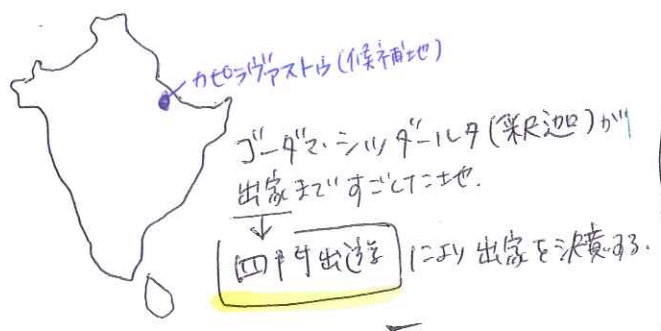 カピラヴァストゥ(候補地)
ゴータマ・シッダールタ(釈迦)が
出家まですごした土地.
四門出遊 により出家を決意する.